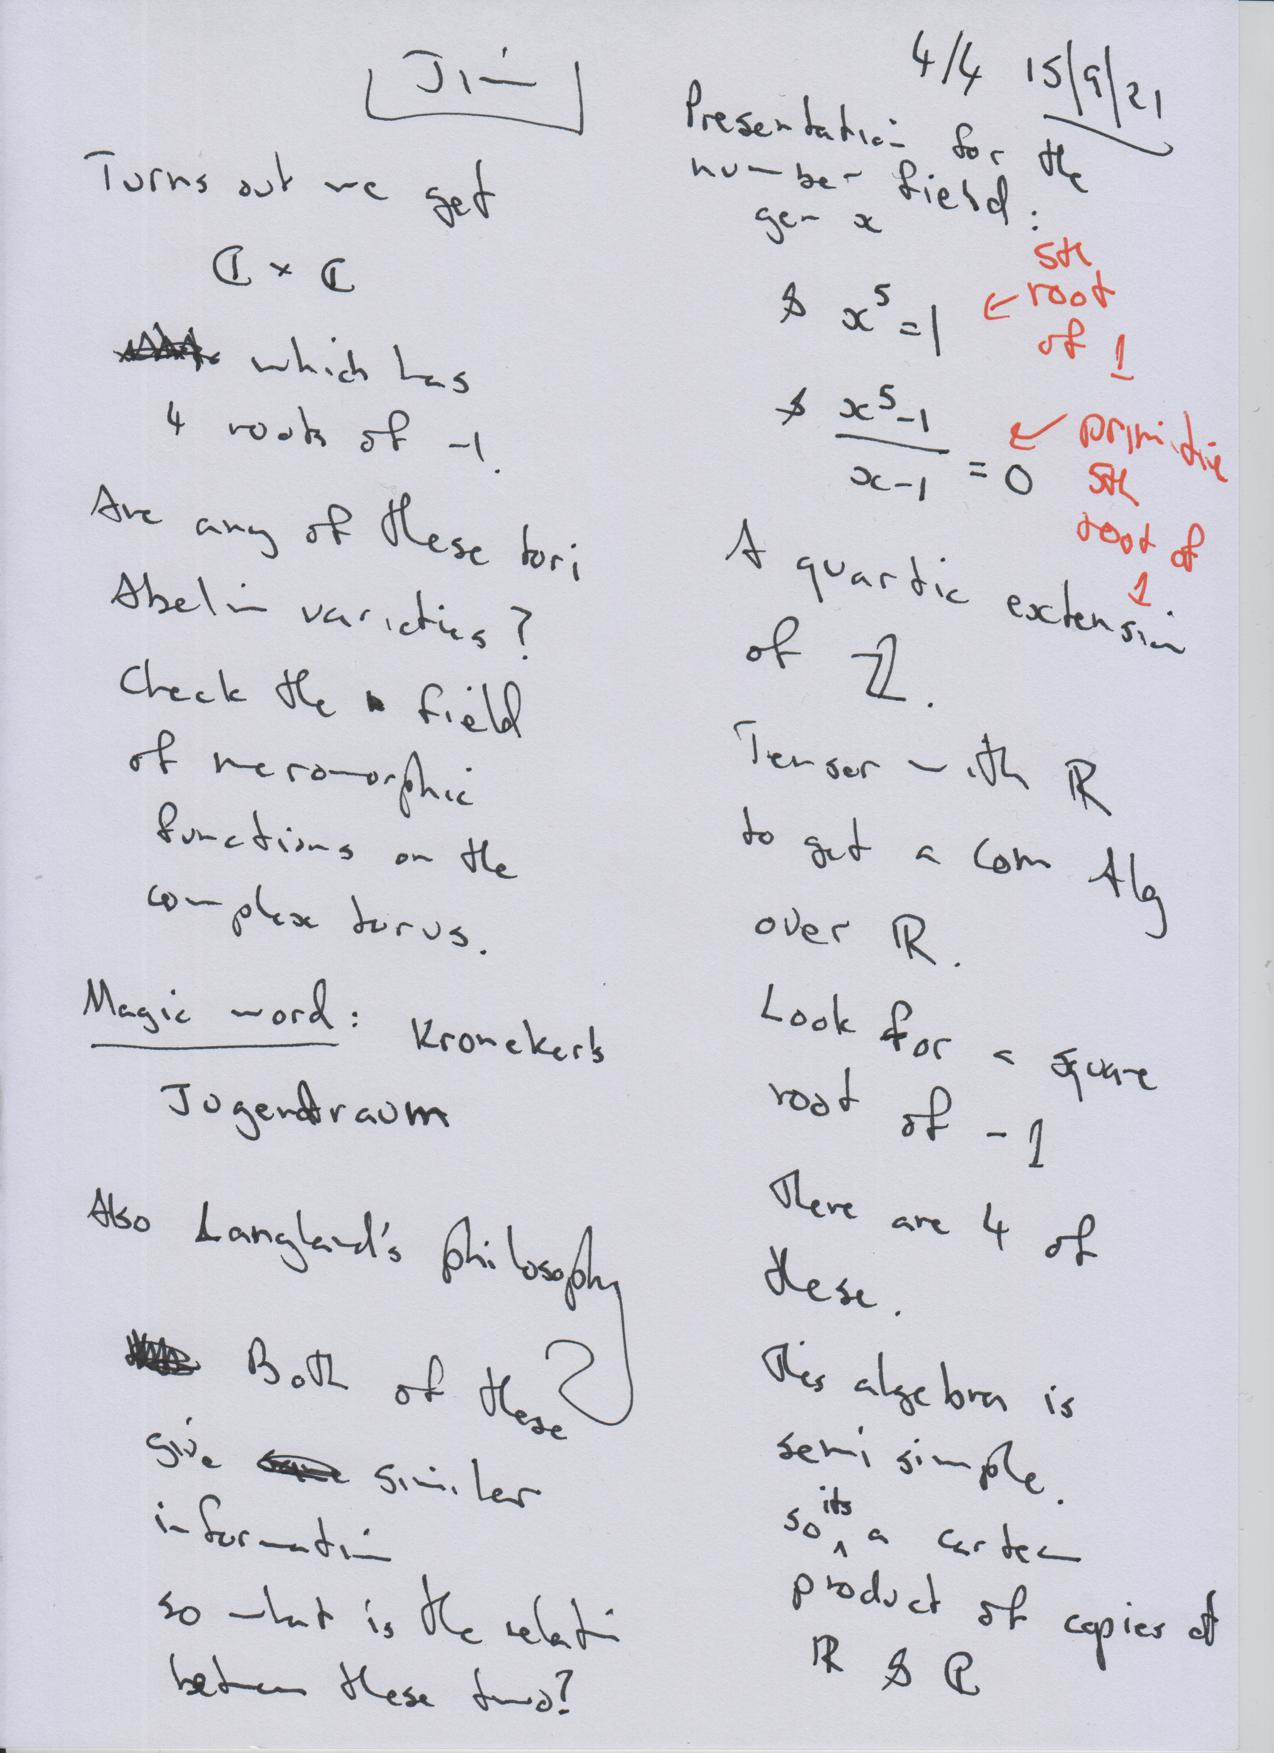 Jim
4/4 15/9/21
Turns out we get
ℂ × ℂ
which has
4 roots of -1.
Are any of these tori
Abelin varieties?
Check the field
of meromorphic
functions on the
complex torus.
Magic word: Kronekerb
Jugendtraum
Also Langland's philosophy
Both of these
give similar
information
so what is the relation
between these two?
Presentation for the
number field:
gen x
& x⁵ = 1 ← 5th
root
of 1
& (x⁵-1)/(x-1) = 0 ← primitive
5th
root of
1
A quartic extension
of ℤ.
Tensor with ℝ
to get a com Alg
over ℝ.
Look for a square
root of -1
there are 4 of
these.
This algebra is
semi simple.
so its a cartesian
product of copies of
ℝ & ℂ